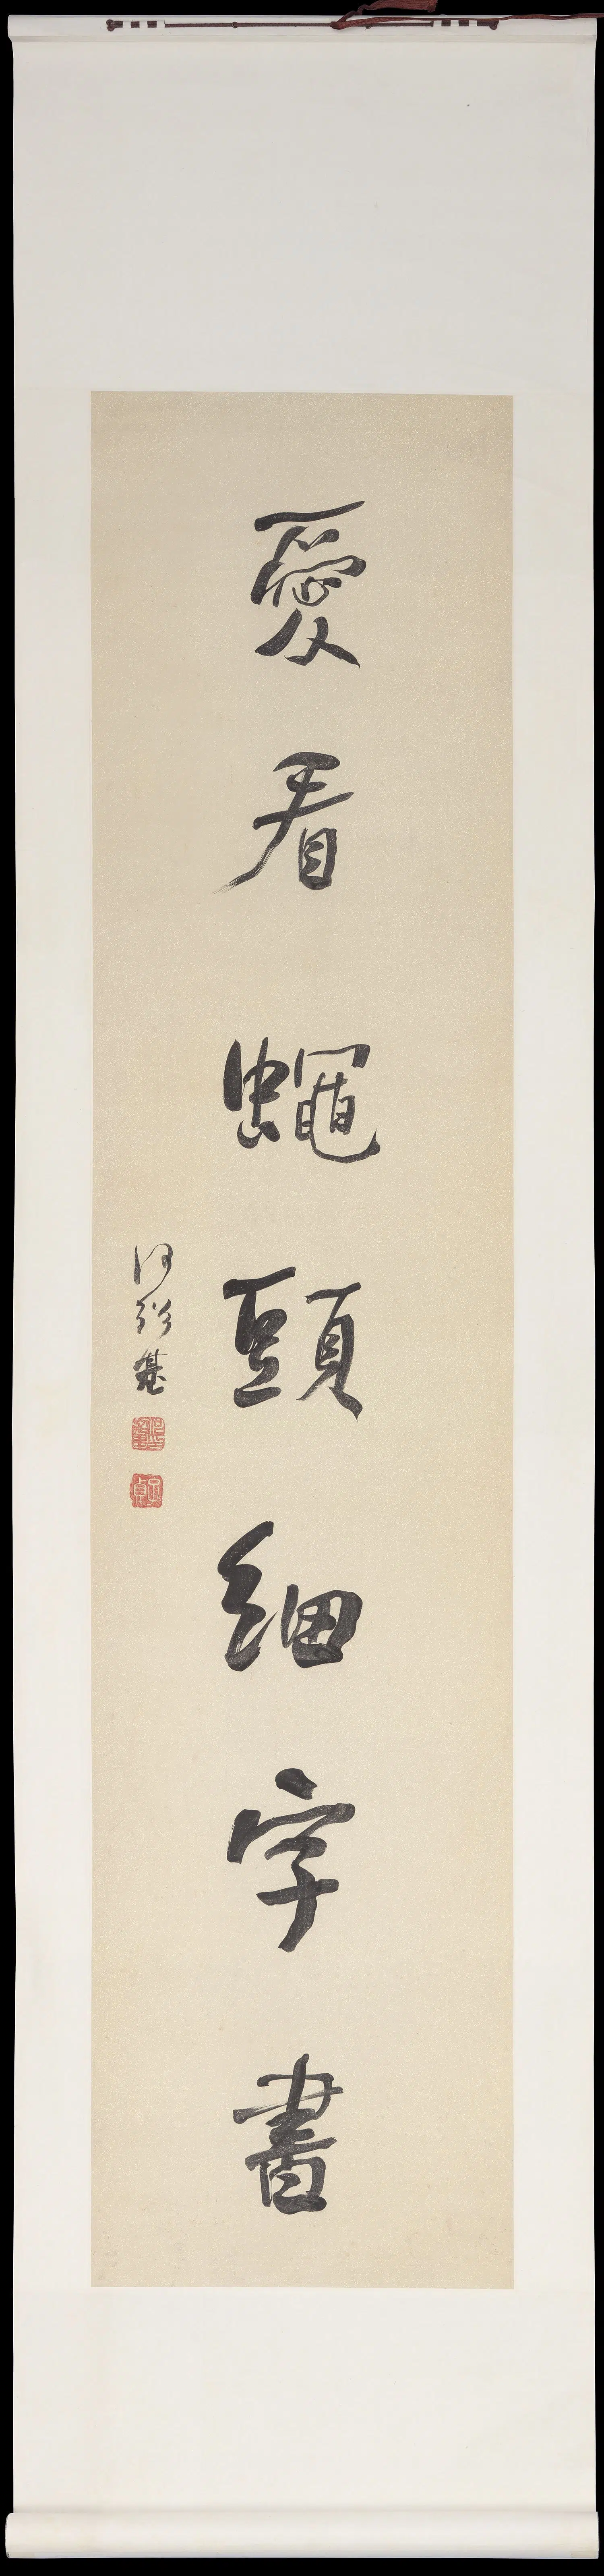 愛看蠅頭細字書
何紹基